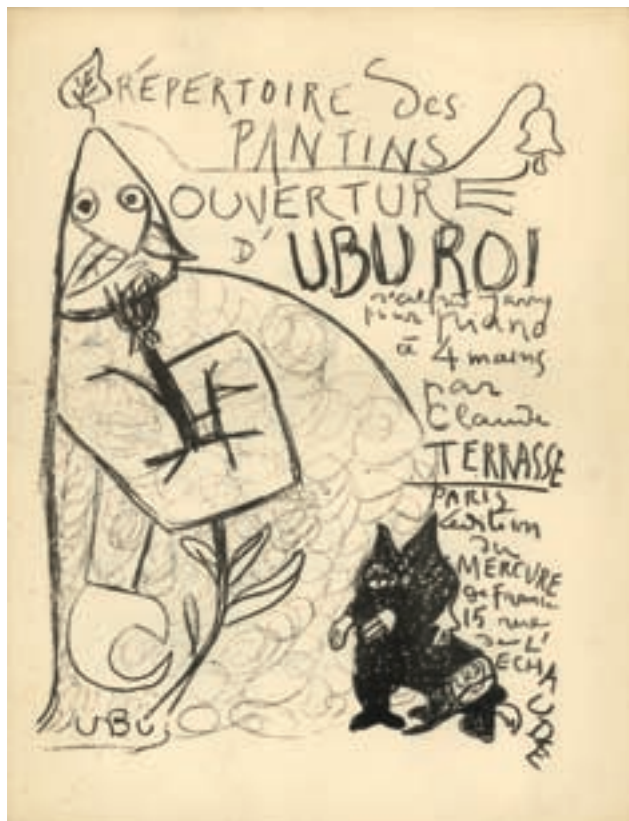 LE
RÉPERTOIRE Des
PANTINS
OUVERTURE
D'UBU ROI
d'Alfred Jarry
pour piano
à 4 mains
par
Claude
TERRASSE
PARIS
édition
du
MERCURE
de France
15 rue
de L'
ECHAUDÉ
UBU